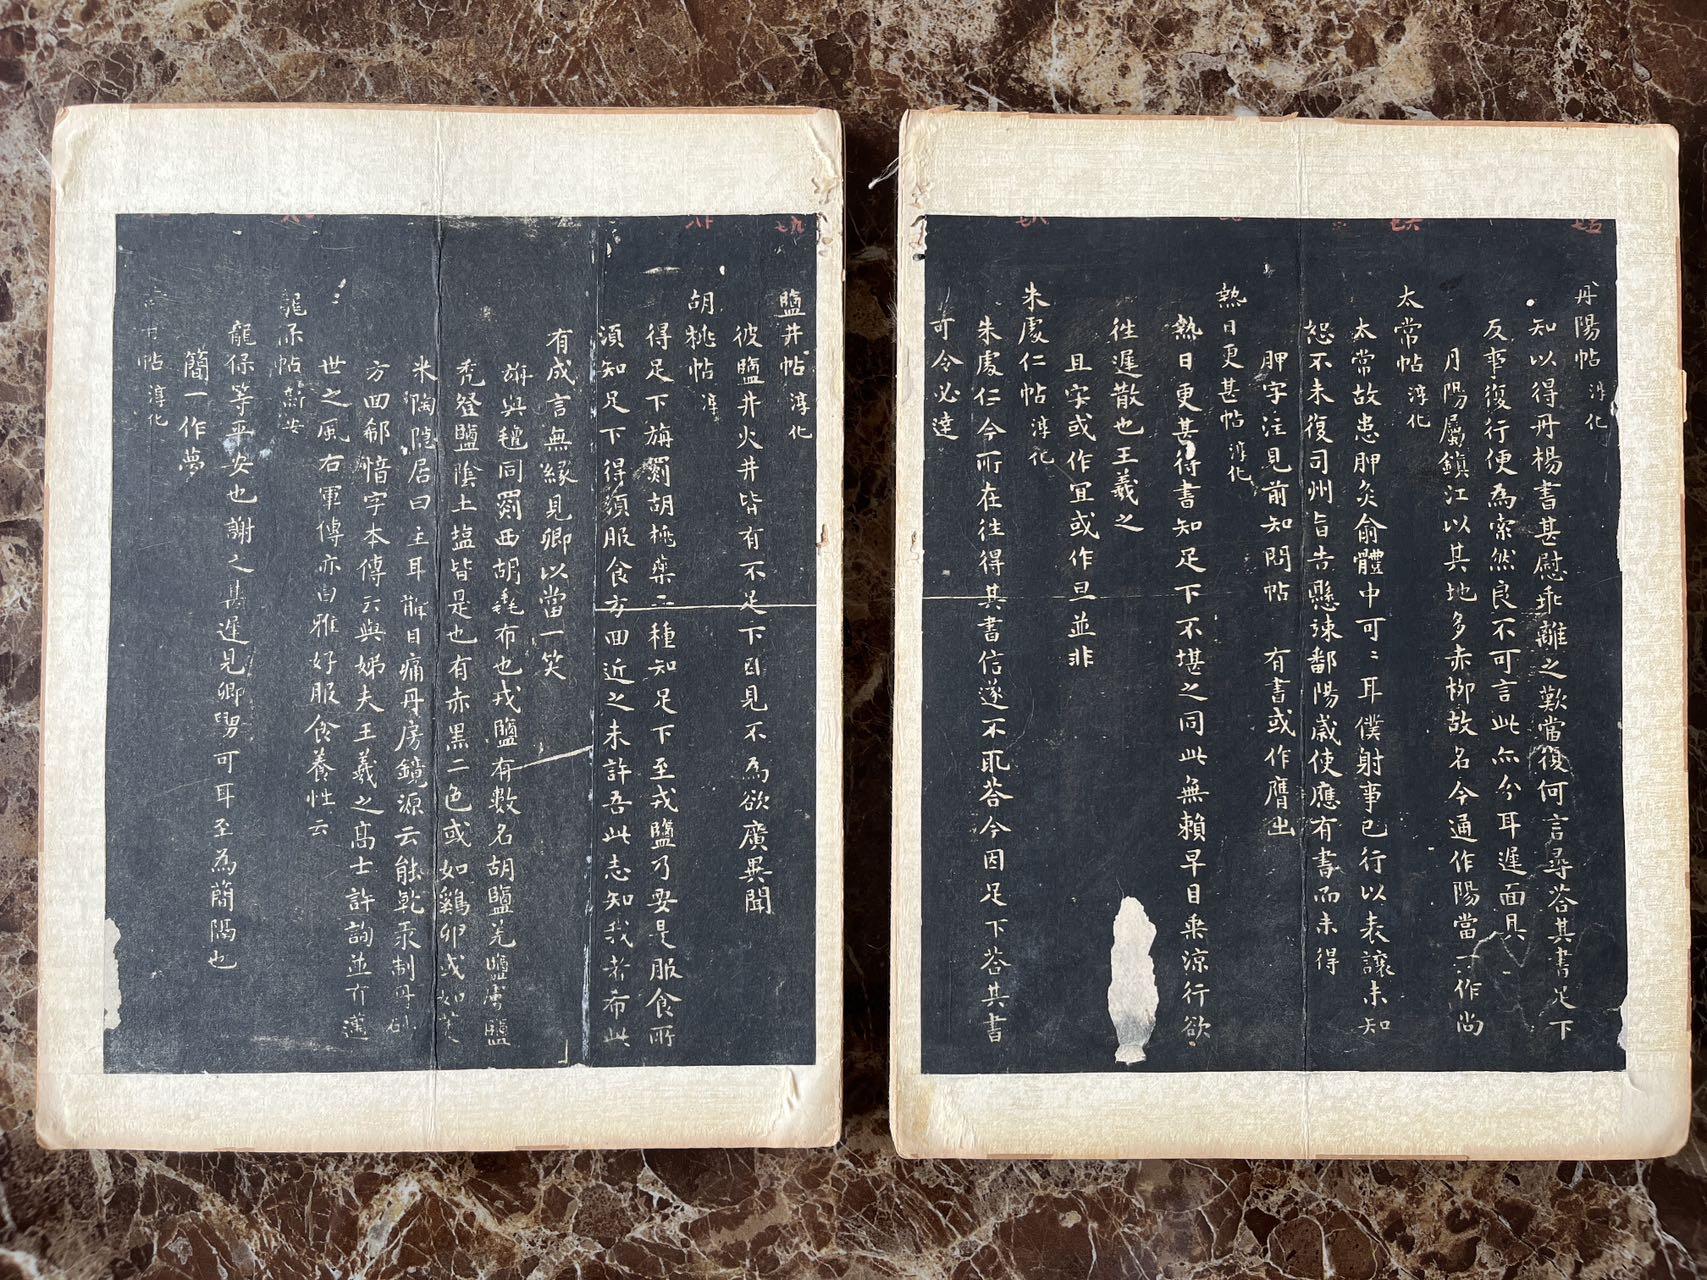 丹陽帖 淳化
知以得丹楊書甚慰乖離之歎當復何言尋荅其書足下
反事復行便為索然良不可言此亦分耳遲面具
丹陽屬鎮江以其地多赤柳故名今通作陽當一作尚
太常帖 淳化
太常故患胛灸俞體中可〻耳僕射事已行以表讓未知
恕不未復司州旨告懸竦鄱陽歲使應有書而未得
胛字注見前知問帖 有書或作膺出
熱日更甚帖 淳化
熱日更甚得書知足下不堪之同此無賴早且乘涼行欲
往遲散也王羲之
且字或作宜或作旦並非
朱處仁帖 淳化
朱處仁今所在往得其書信遂不取荅今因足下荅其書
可令必達
七五
七六
七八
鹽井帖 淳化
彼鹽井火井皆有不足下目見不為欲廣異聞
胡桃帖 淳
得足下旃罽胡桃藥二種知足下至戎鹽乃要是服食所
須知足下得須服食方回近之未許吾此志知我者希此
有成言無緣見卿以當一笑
旃與氊同罽西胡毳布也戎鹽有數名胡鹽羌鹽鹽
禿登鹽陰土塩皆是也有赤黑二色或如鷄卵或如
米陶隱居曰主耳目痛丹房鏡源云能乾汞制丹砂
方回郗愔字本傳云與姊夫王羲之高士許詢並有邁
世之風右軍傳亦曰雅好服食養性云
龍保帖 新安
龍保等平安也謝之甚遲見卿舅可耳至為簡隔也
簡一作夢
帖 淳化
七九
八十